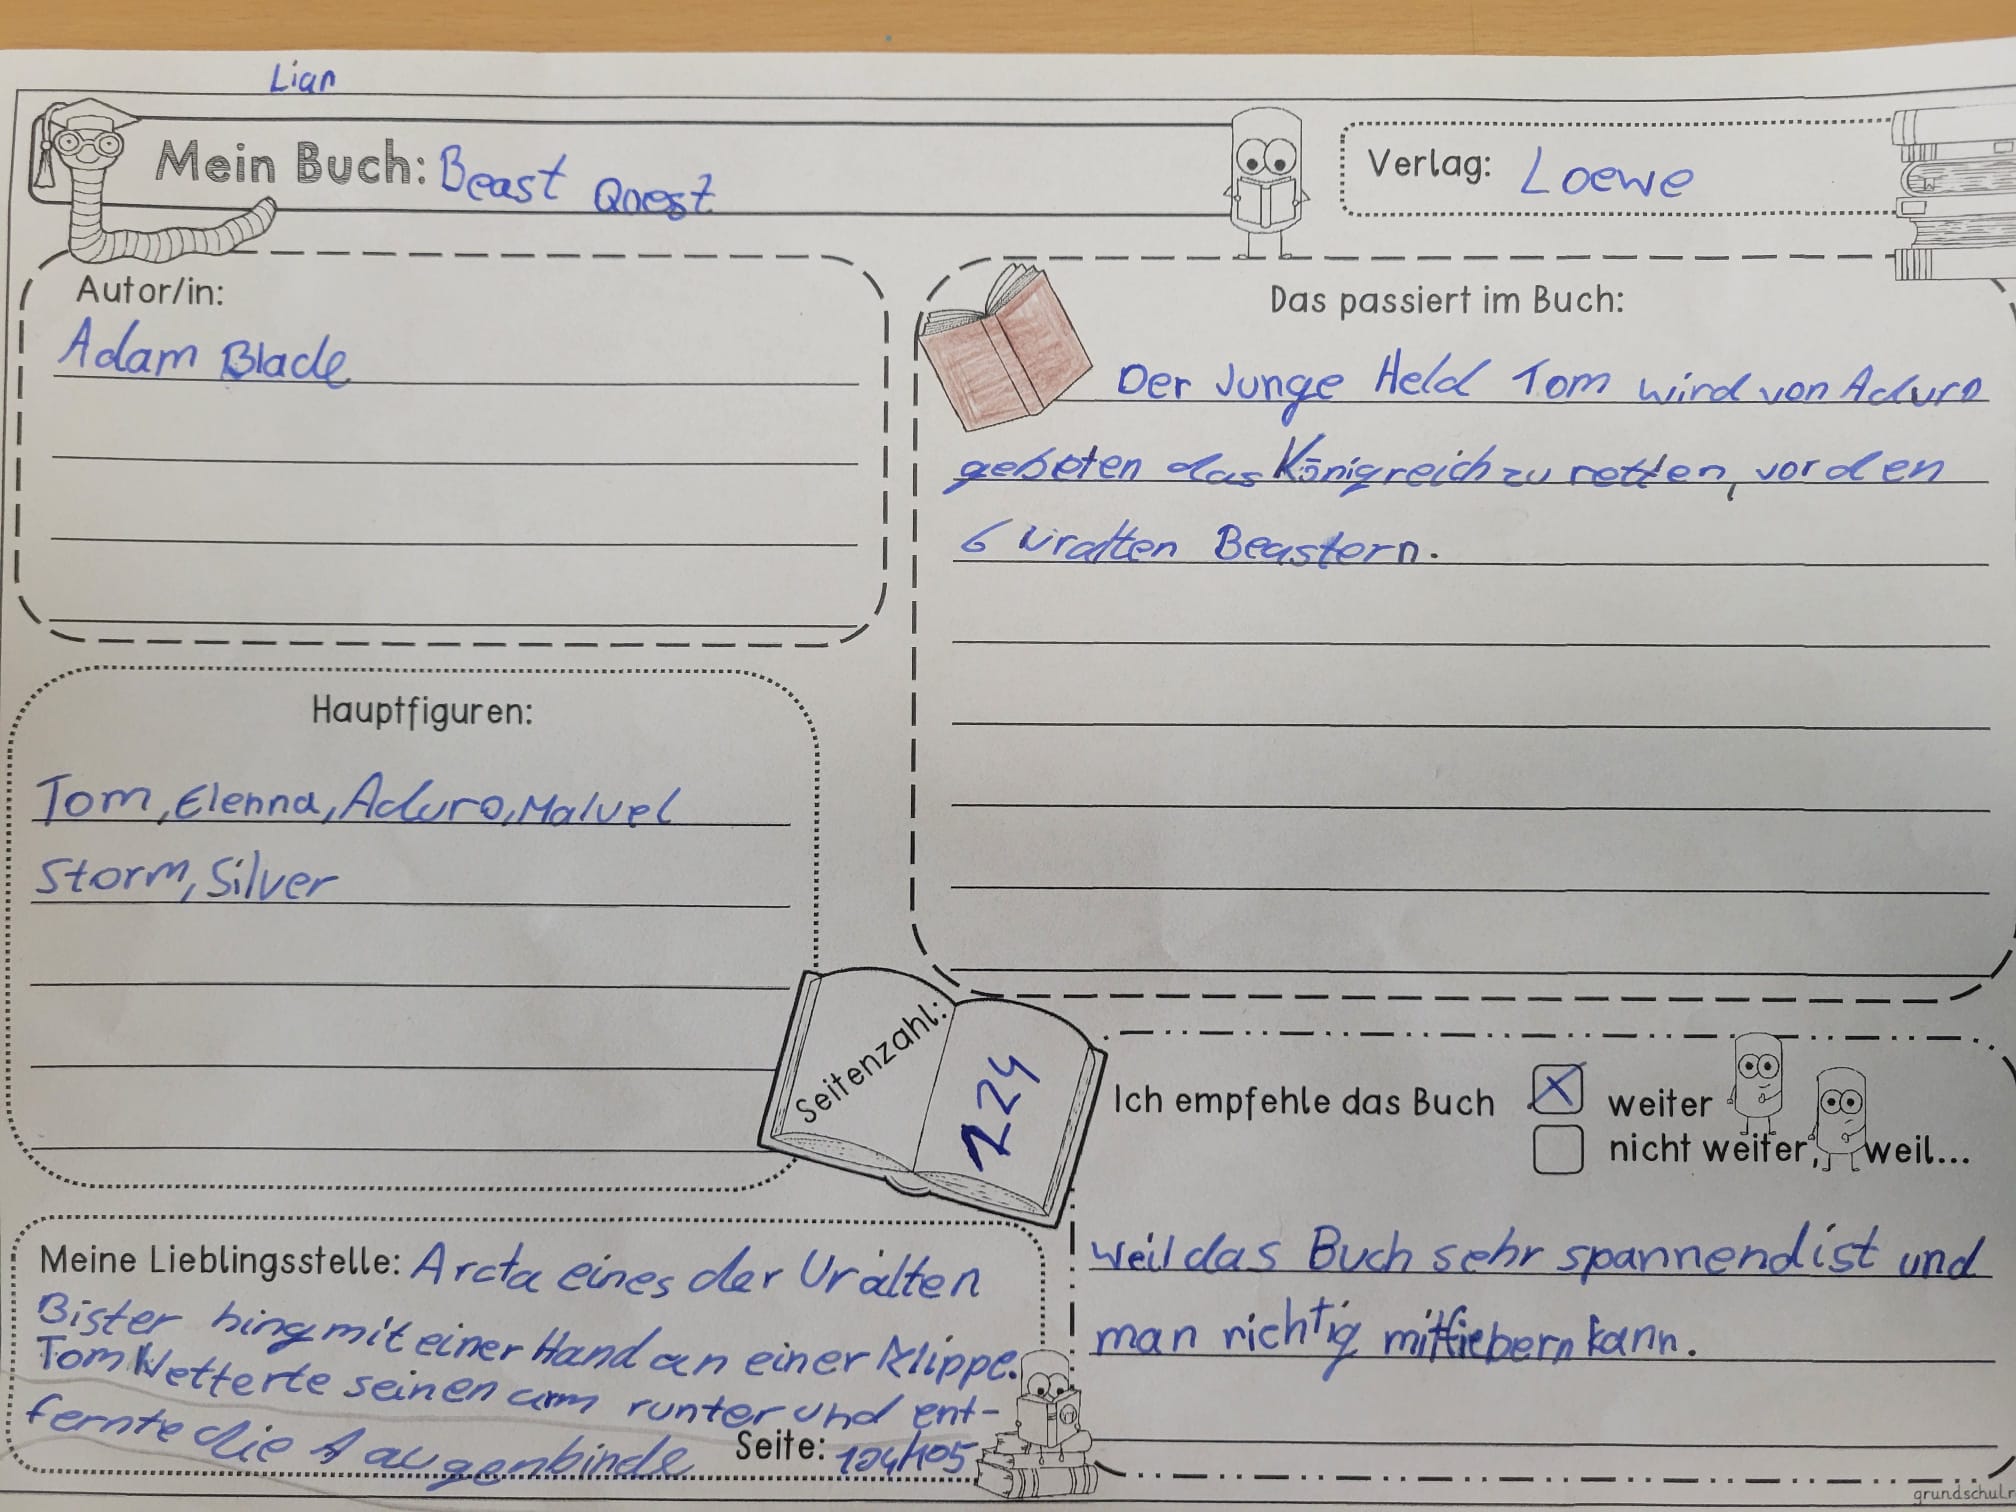 Lian
Mein Buch: Beast Quest
Verlag: Loewe
Autor/in:
Adam Blade
Das passiert im Buch:
Der Junge Held Tom wird von Aduro
gebeten das Königreich zu retten, vor den
6 Uralten Beastern.
Hauptfiguren:
Tom, Elenna, Aduro, Malvel
Storm, Silver
Seitenzahl:
124
Ich empfehle das Buch
weiter
nicht weiter, weil...
weil das Buch sehr spannend ist und
man richtig mitfiebern kann.
Meine Lieblingsstelle: Arcta eines der Uralten
Bister hing mit einer Hand an einer Klippe.
Tom kletterte seinen arm runter und ent-
fernte die augenbinde Seite: 104/105